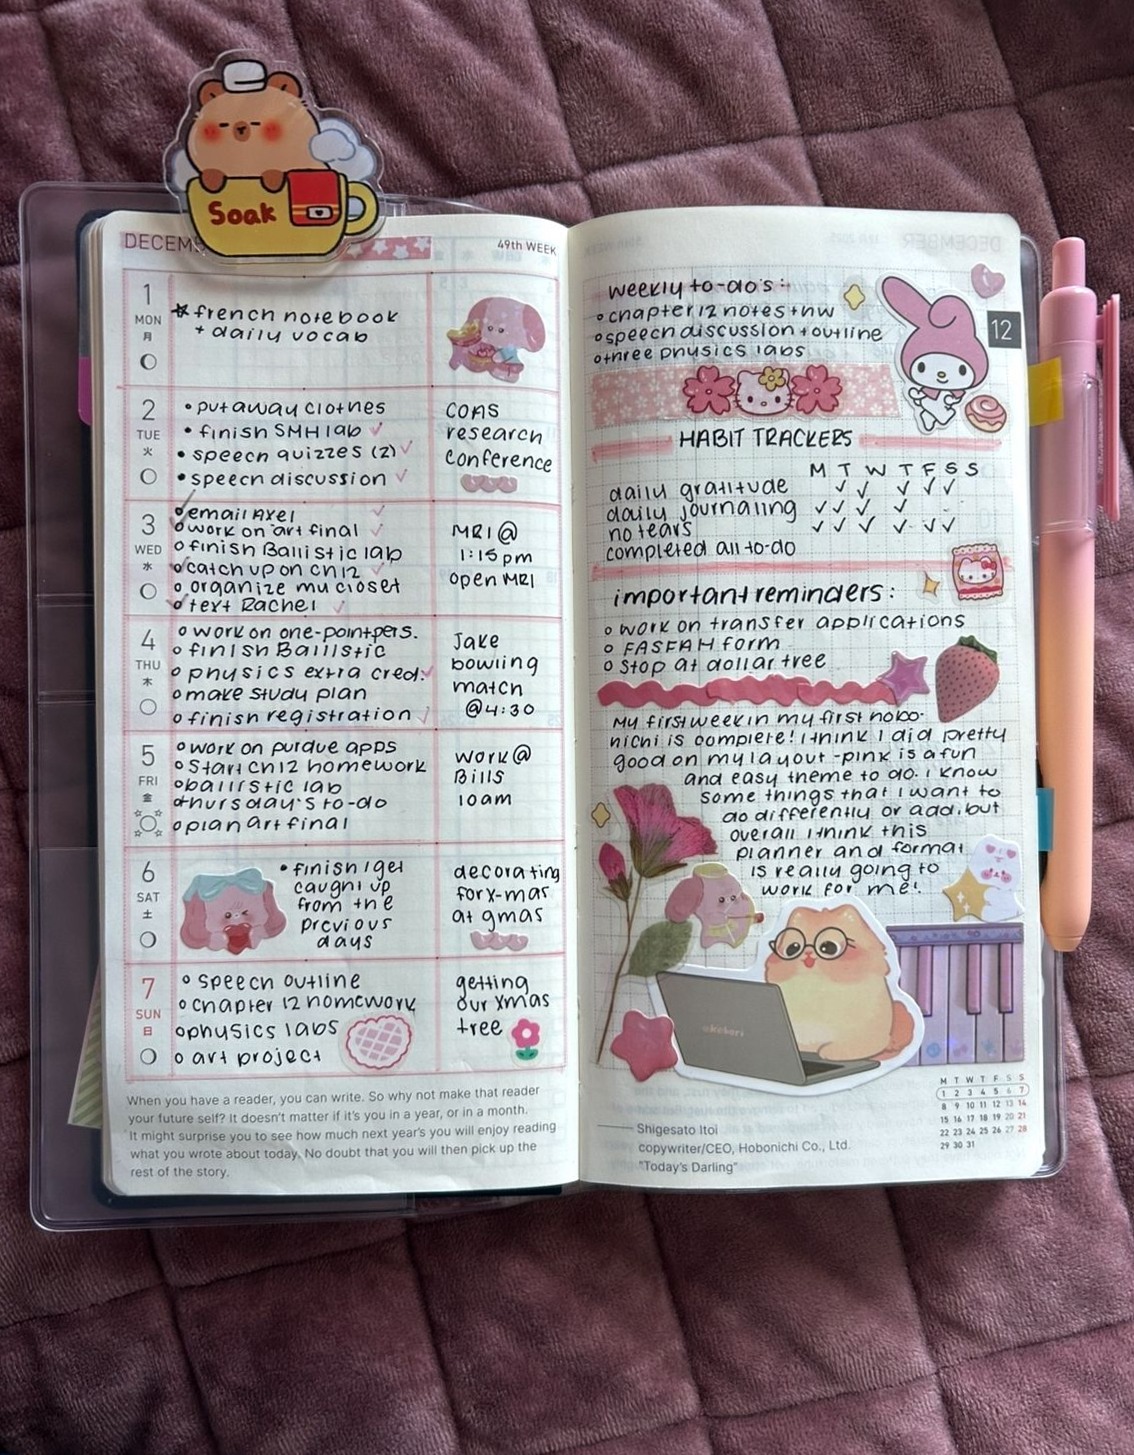 Soak
DECEMB
49th WEEK
1
MON
月
french notebook
+ daily vocab
2
TUE
火
• put away clothes
• finish SMH lab ✓
• speech quizzes (2) ✓
• speech discussion ✓
CONS
research
conference
3
WED
水
email Axel ✓
work on art final ✓
finish Ballistic lab
catch up on ch12 ✓
organize mu closet
text Rachel ✓
MRI @
1:15pm
open MRI
4
THU
木
work on one-pointpers.
finish Ballistic
physics extra cred. ✓
make study plan
finish registration ✓
Jake
bowling
match
@4:30
5
FRI
金
work on purdue apps
start ch12 homework
ballistic lab
thursday's to-do
plan art final
work @
Bills
10am
6
SAT
土
• finish/get
caught up
from the
previous
days
decorating
for x-mas
at gmas
7
SUN
日
speech outline
chapter 12 homework
physics labs
art project
getting
our xmas
tree
When you have a reader, you can write. So why not make that reader
your future self? It doesn't matter if it's you in a year, or in a month.
It might surprise you to see how much next year's you will enjoy reading
what you wrote about today. No doubt that you will then pick up the
rest of the story.
weekly to-do's:
chapter 12 notes + hw
speech discussion + outline
three physics labs
12
HABIT TRACKERS
M T W T F S S
daily gratitude ✓ ✓ ✓ ✓ ✓
daily journaling ✓ ✓ ✓ ✓
no tears ✓ ✓ ✓ ✓ ✓ ✓
completed all to-do
important reminders:
work on transfer applications
FASFAH form
stop at dollar tree
My first week in my first hobo-
nichi is complete! I think I did pretty
good on my layout - pink is a fun
and easy theme to do. I know
some things that I want to
do differently or add, but
overall I think this
planner and format
is really going to
work for me!
Shigesato Itoi
copywriter/CEO, Hobonichi Co., Ltd.
"Today's Darling"
M T W T F S S
1 2 3 4 5 6 7
8 9 10 11 12 13 14
15 16 17 18 19 20 21
22 23 24 25 26 27 28
29 30 31